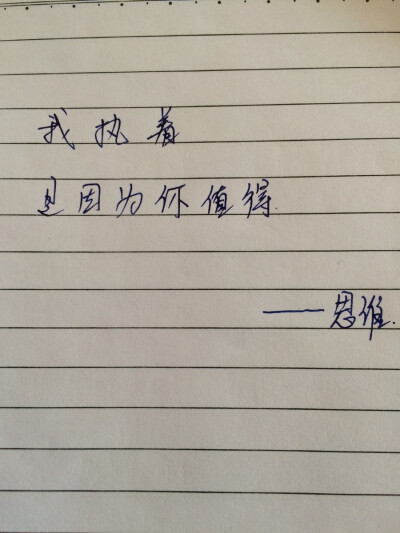 我执着
是因为你值得.
——思维.